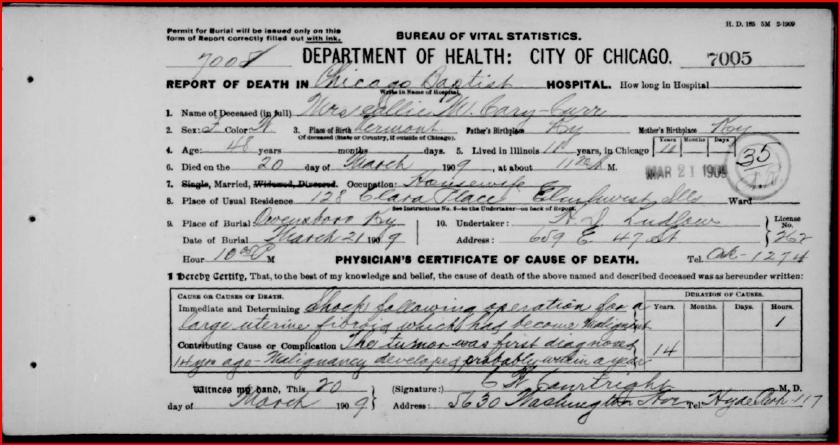 H. D. 185 5M 2-1909
Permit for Burial will be issued only on this form of Report correctly filled out with ink.
BUREAU OF VITAL STATISTICS.
7005 DEPARTMENT OF HEALTH: CITY OF CHICAGO. 7005
REPORT OF DEATH IN Chicago Baptist HOSPITAL. How long in Hospital
Write in Name of Hospital
1. Name of Deceased (in full) Mrs Sallie M. Cary-Curr
2. Sex: F Color W 3. Place of Birth Vermont Father's Birthplace Ky Mother's Birthplace Ky
of deceased (State or Country, if outside of Chicago).
4. Age: 48 years months days. 5. Lived in Illinois years, in Chicago Years Months Days
6. Died on the 20 day of March 1909, at about 11 M
MAR 21 1909
35
7. Single, Married, Widowed, Divorced. Occupation: Housewife
8. Place of Usual Residence 128 Clara Place Elmhurst Ills Ward
See Instructions No. 8—to the Undertaker—on back of Report.
9. Place of Burial Owensboro Ky 10. Undertaker: Ludlow License No. 262
Date of Burial March 21 1909 Address: 659 E 47 St
Hour 10 P M Tel. Oak-1274
PHYSICIAN'S CERTIFICATE OF CAUSE OF DEATH.
I Hereby Certify, That, to the best of my knowledge and belief, the cause of death of the above named and described deceased was as hereunder written:
CAUSE OR CAUSES OF DEATH. DURATION OF CAUSES.
Years. Months. Days. Hours.
Immediate and Determining Shock following operation for a
large uterine fibroid which had become malignant 1
Contributing Cause or Complication The tumor was first diagnosed
14 yrs ago - Malignancy developed probably within a year 14
Witness my hand, This 20 (Signature:) C W Courtright M. D.
day of March 1909 Address: 5630 Washington Ave Tel Hyde Park 117